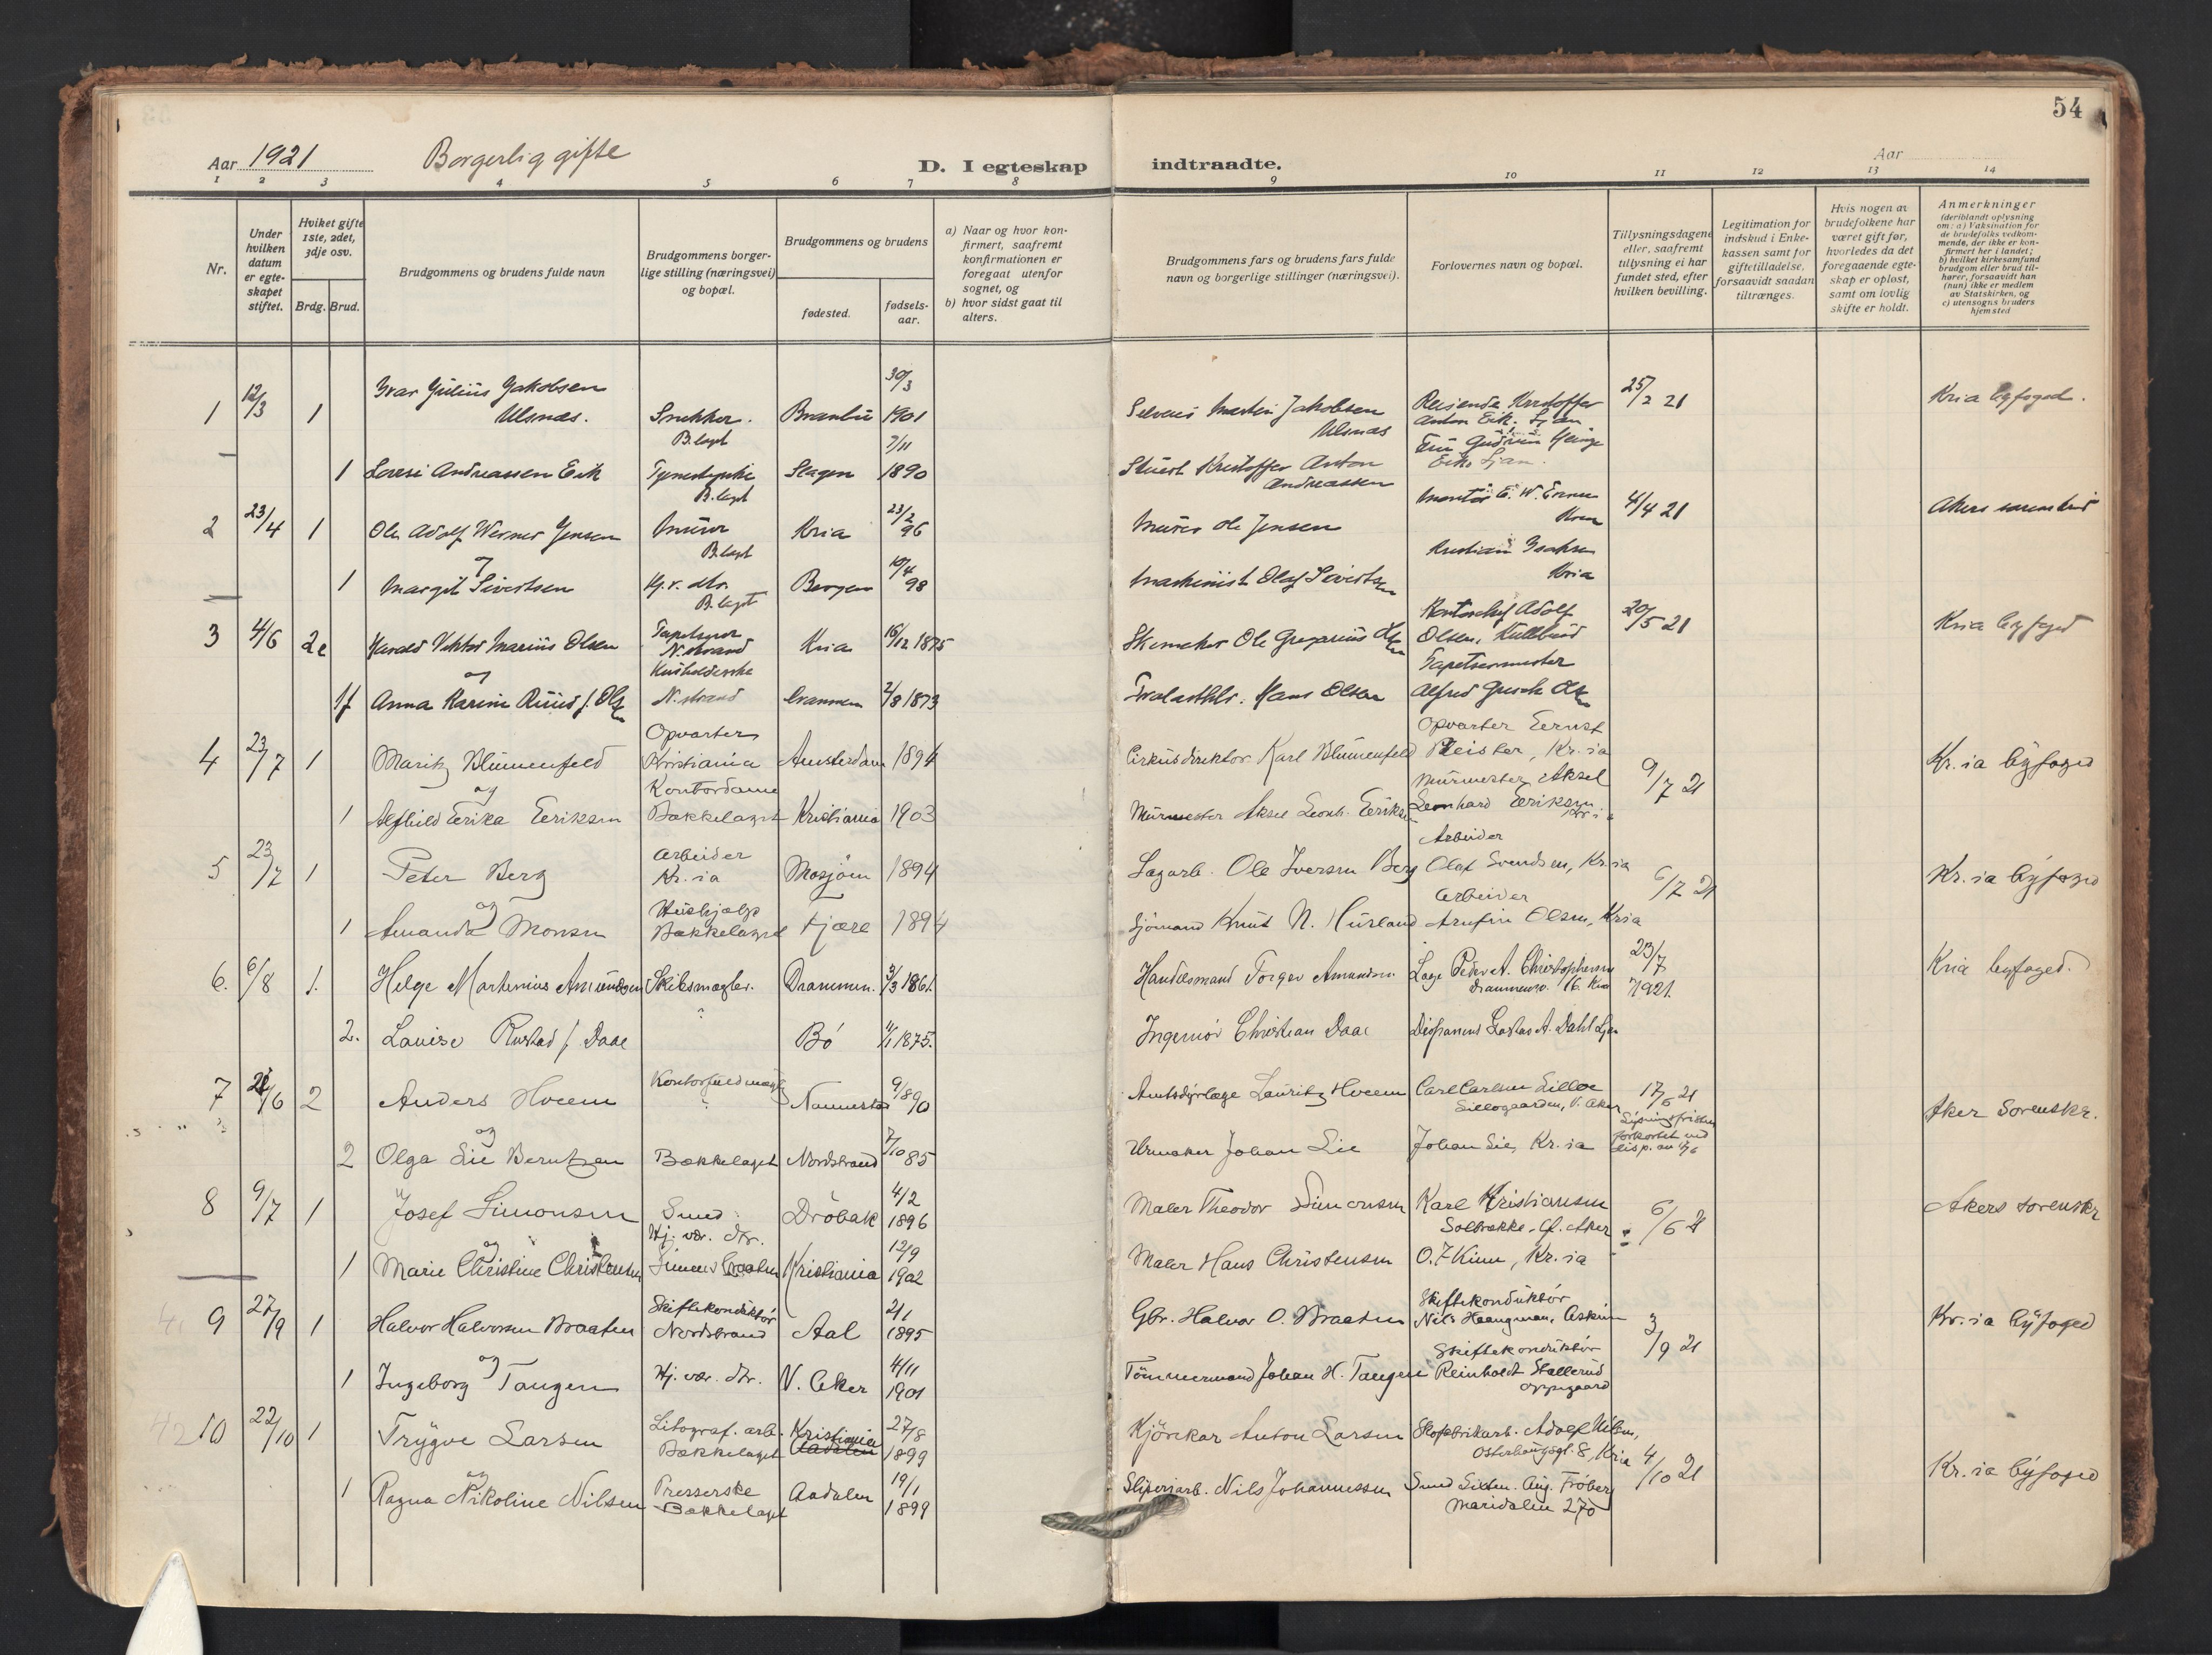 54
Aar 1921 Borgerlig gifte D. I egteskap indtraadte. Aar
1 2 3 4 5 6 7 8 9 10 11 12 13 14
Nr.
Under hvilken datum er egteskapet stiftet.
Hviket gifte 1ste, 2det, 3dje osv.
Brdg. Brud.
Brudgommens og brudens fulde navn
Brudgommens borgerlige stilling (næringsvei) og bopæl.
Brudgommens og brudens
fødested.
fødselsaar.
a) Naar og hvor konfirmert, saafremt konfirmationen er foregaat utenfor sognet, og
b) hvor sidst gaat til alters.
Brudgommens fars og brudens fars fulde navn og borgerlige stillinger (næringsvei).
Forlovernes navn og bopæl.
Tillysningsdagene eller, saafremt tillysning ei har fundet sted, efter hvilken bevilling.
Legitimation for indskud i Enkekassen samt for giftetilladelse, forsaavidt saadan tiltrænges.
Hvis nogen av brudefolkene har været gift før, hvorledes da det foregaaende egteskap er opløst, samt om lovlig skifte er holdt.
Anmerkninger (deriblandt oplysning om: a) Vaksination for de brudefolks vedkommende, der ikke er konfirmert her i landet; b) hvilket kirkesamfund brudgom eller brud tilhører, forsaavidt han (hun) ikke er medlem av Statskirken, og c) utensogns bruders hjemsted
1 12/3 1 Ivar Julius Jakobsen Ulsnæs. Snekker. B.laget 30/3 1901 Martin Jakobsen Ulsnæs Reisende Kristoffer Anton Eik. Ljan 25/2 21 Kria byfoged.
1 Andreassen Eik B.laget Slagen 7/11 1890 Kristoffer Anton Andreassen Eik Ljan.
2 23/4 1 Ole Adolf Werner Jensen Murer B.laget Kria 23/2 96 Murer Ole Jensen 4/4 21
og
1 Margit Sivertsen Hj.v. dtr. B.laget Bergen 10/4 98 Maskinist Olaf Sivertsen Kristian Isaksen Kria
3 4/6 2e Harald Viktor Marius Olsen N.strand Kria 16/12 1875 Ole Gregorius Olsen Adolf Olsen, 30/5 21 Kria byfoged
og
1 f Anna Karine Ruud f. Olsen N.strand Drammen 2/8 1873 Hans Olsen Tapetserermester Alfred Olsen
4 23/7 1 Maritz Blumenfeld Opvarter Kristiania Amsterdam 1894 Cirkusdirektør Karl Blumenfeld Opvarter Ernst Pleister, Kr.ia 9/7 21 Kr.ia byfoged
og
1 Alfhild Erika Eriksen Kontordame Bækkelaget Kristiania 1903 Murmester Aksel Leonh. Eriksen Murmester Aksel Leonhard Eriksen, Kr.ia
5 23/7 1 Peter Berg Arbeider Kr.ia Mosjøen 1894 Sagarb. Ole Iversen Berg Arbeider Olaf Svendsen, Kr.ia 6/7 21 Kr.ia byfoged
og
1 Amanda Monsen Hushjælp Bækkelaget Fjære 1894 Sjømand Knut N. Hurland Arbeider Arnfin Olsen, Kria
6. 6/8 1. Helge Marthinius Amundsen Skibsmægler. Drammen. 3/3 1861. Handelsmand Torger Amundsen Læge Peder A. Christophersen Drammensv. 16. Kria 23/7 1921. Kria byfoged.
2. Louise Rustad f. Daae Bø 4/1 1875. Ingeniør Christian Daae Gustav A. Dahl Ljan
7 21/6 2 Anders Hveem Kontorfuldmægtig Nannestad 9/8 90 Amtsdyrlæge Lauritz Hveem Carl Carlsen Lilloe Lillogaarden, V. Aker 17/6 21 Aker Sorenskr.
og
2 Olga Lie Berntzen Bækkelaget Nordstrand 7/10 85 Urmaker Johan Lie Johan Lie, Kr.ia Lysningsfristen forkortet ved disp. av 17/6
8 9/7 1 Josef Simonsen Smed Drøbak 4/2 1896 Maler Theodor Simonsen Karl Kristiansen Solbakke, Ø. Aker 6/6 21 Akers sorenskr
og
1 Marie Christine Christensen Hj. vær. dtr. Kristiania 12/9 1902 Maler Hans Christensen O. F. Kinn, Kr.ia
9 27/9 1 Halvor Halvorsen Braaten Skiftekonduktør Nordstrand Aal 2/1 1895 Gbr. Halvor O. Braaten Skiftekonduktør Nils Haangman, Askim 3/9 21 Kr.ia byfoged
og
1 Ingeborg Tangen Hj. vær. dtr. V. Aker 4/11 1901 Tømmermand Johan H. Tangen Skiftekonduktør Reinholdt Stallerud Oppegaard
10 22/10 1 Trygve Larsen Litograf. arb. Bækkelaget Kristiania Aadalen 27/8 1899 Kjørekar Anton Larsen Skofabrikarb. Adolf Nilsen, Osterhausgt. 8, Kria 4/10 21 Kr.ia byfoged
og
1 Ragna Nikoline Nilsen Presserske Bækkelaget Aadalen 19/1 1899 Sliperiarb. Nils Johannessen Smed Aug. Frøberg Maridalen 270